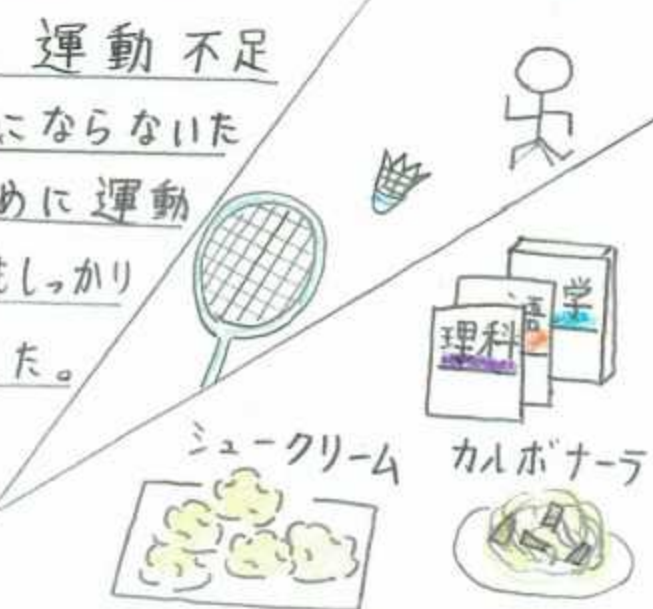 運動不足
にならないた
めに運動
もしっかり
た。
理科
語
学
シュークリーム
カルボナーラ